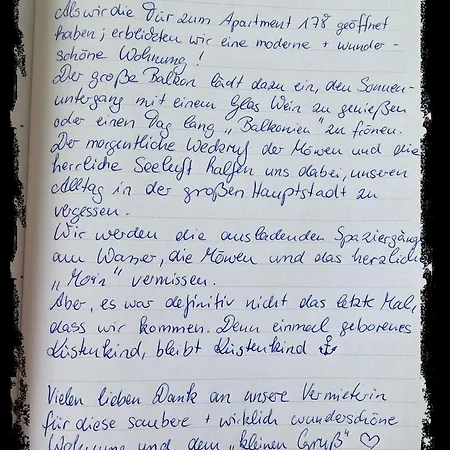 Als wir die Tür zum Apartment 178 geöffnet
haben, erblickten wir eine moderne + wunder-
schöne Wohnung!
Der große Balkon lädt dazu ein, den Sonnen-
untergang mit einem Glas Wein zu genießen
oder einen Tag lang „Balkonien" zu frönen.
Der morgentliche Weckruf der Möwen und die
herrliche Seeluft halfen uns dabei, unseren
Alltag in der großen Hauptstadt zu
vergessen.
Wir werden die ausladenden Spaziergäng
am Wasser, die Möwen und das herzlich
„Moin" vermissen.
Aber, es war definitiv nicht das letzte Mal,
dass wir kommen. Denn einmal geborenes
Küstenkind, bleibt Küstenkind ⚓
Vielen lieben Dank an unsere Vermieterin
für diese saubere + wirklich wunderschöne
Wohnung und dem „kleinen Gruß" ♡